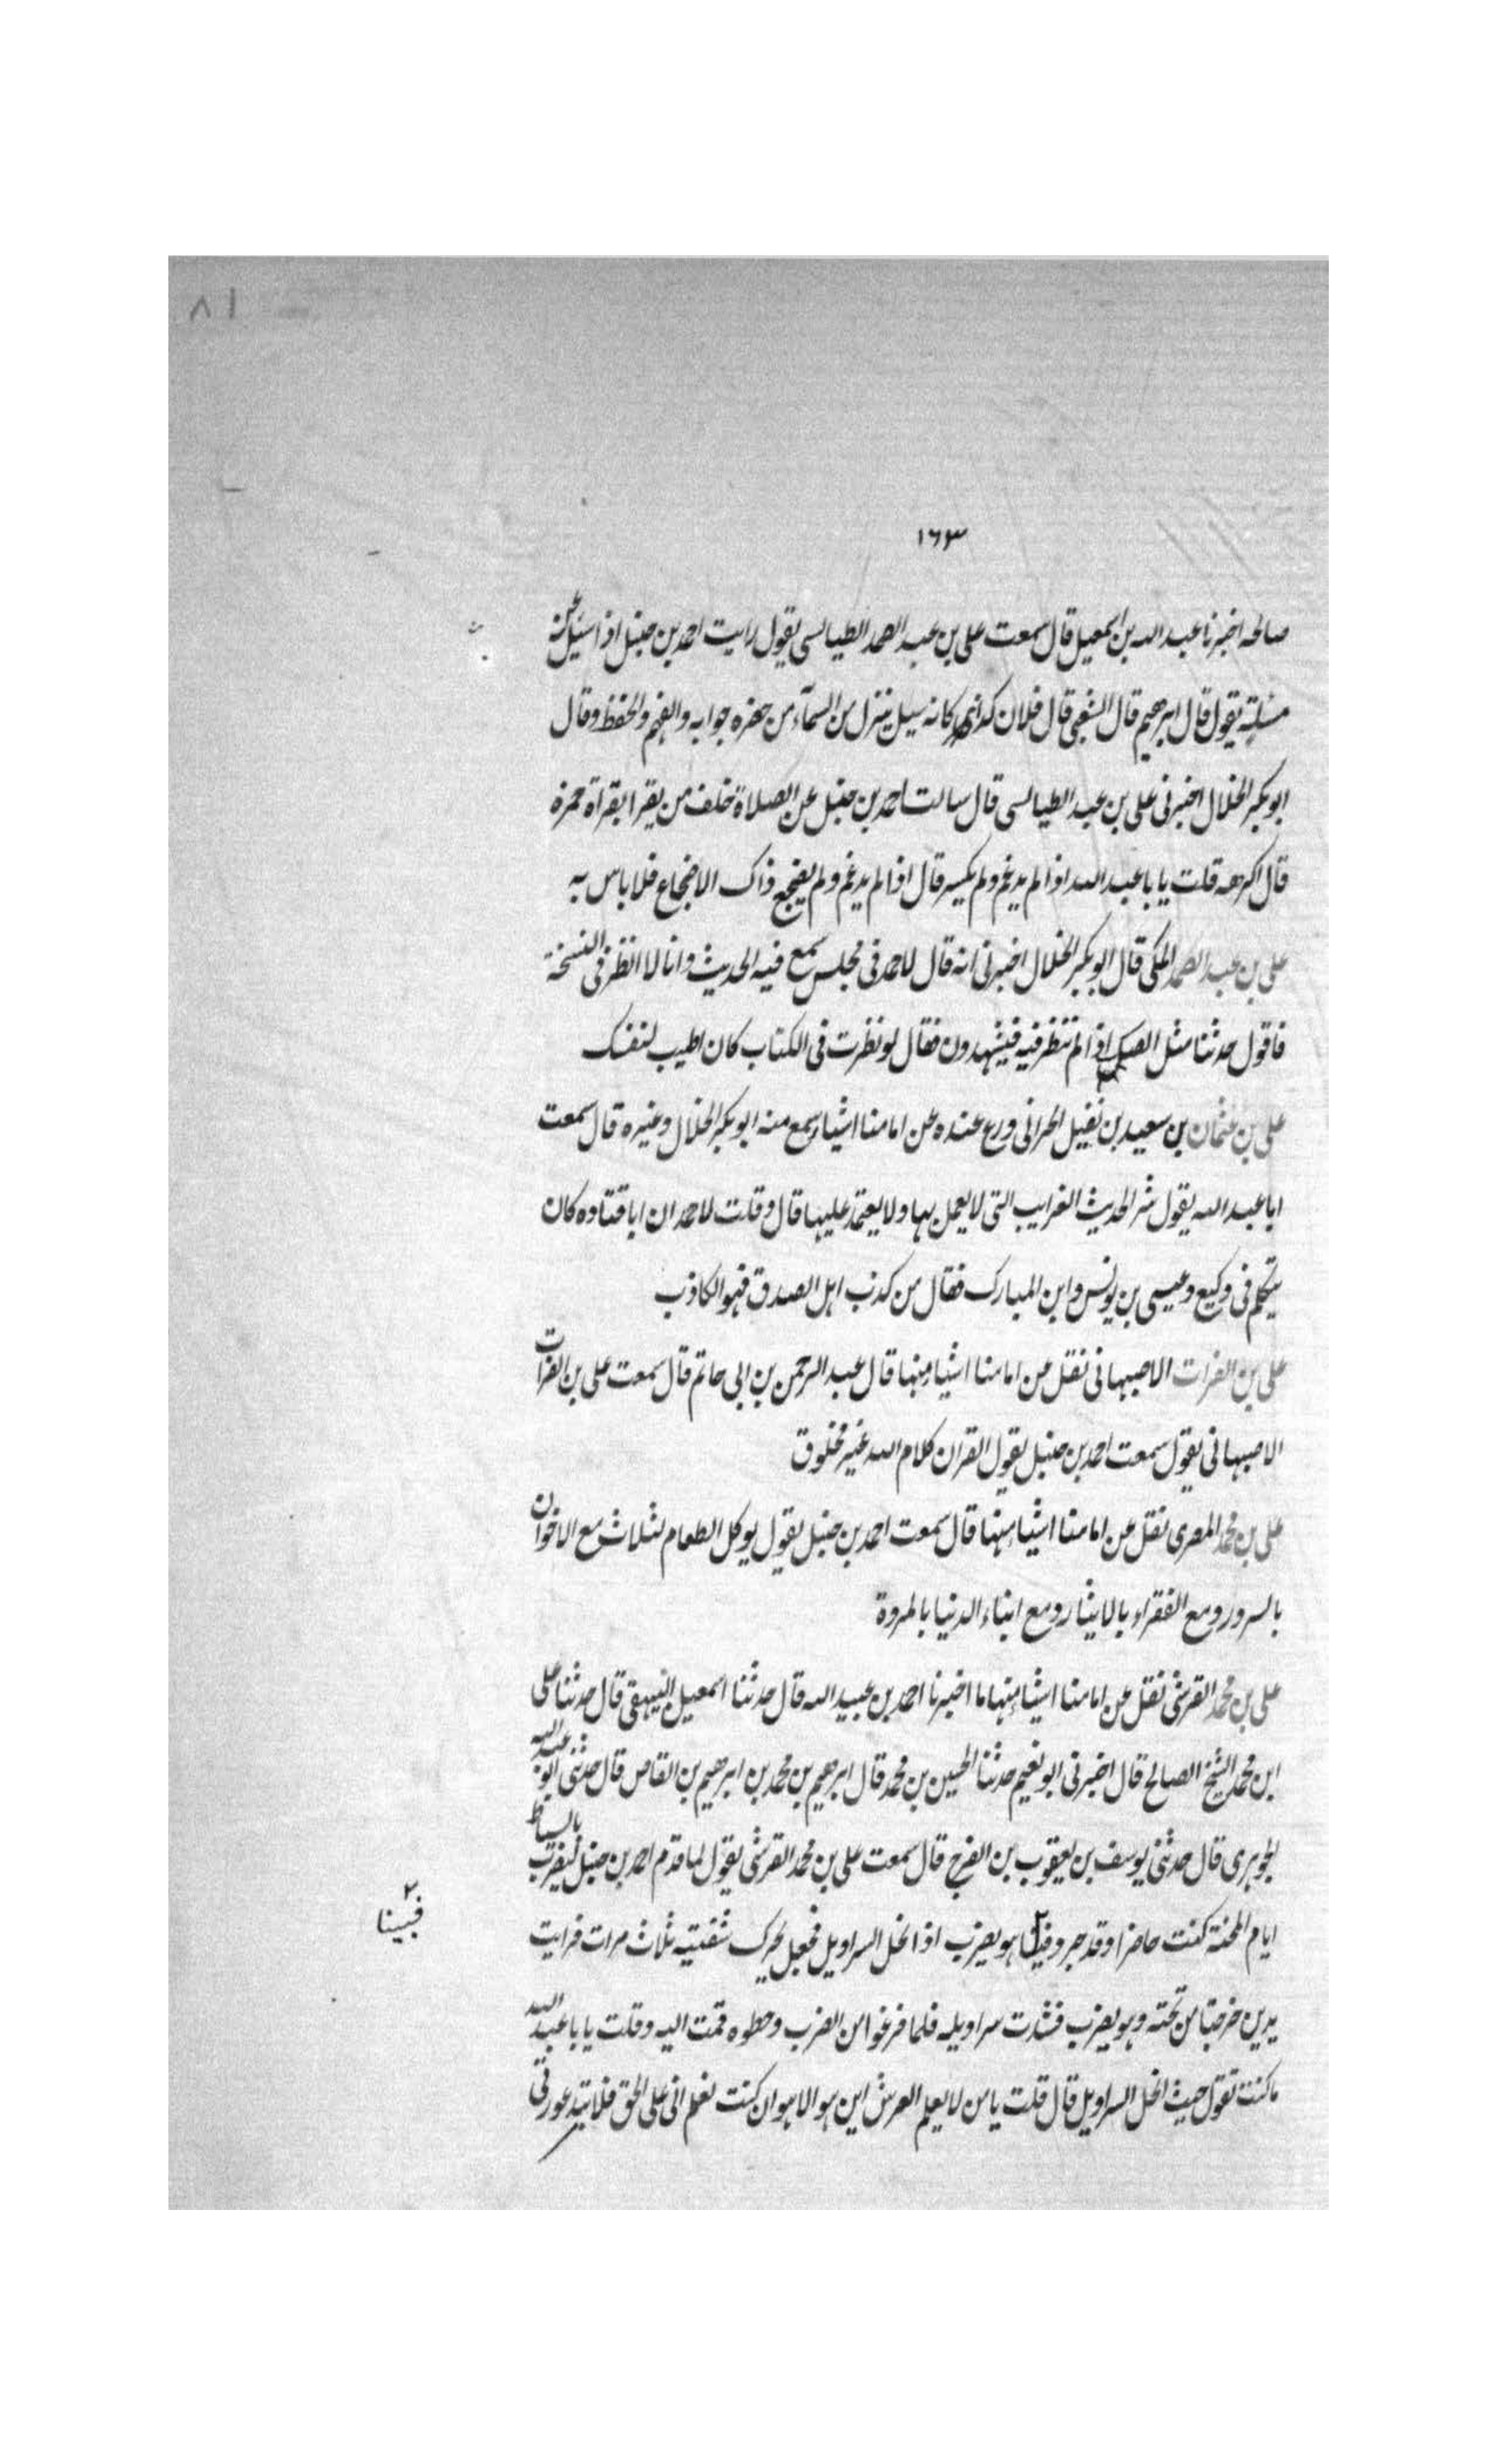 ٨١
١٦٣
صالحة اخبرنا عبد الله بن اسمعيل قال سمعت على بن عبد الصمد الطيالسى يقول رايت احمد بن حنبل اذا سئل عن
مسئلة يقول قال ابرهيم قال الشعبى قال فلان كانه سيل ينزل من السمآء من حضرة جوابه والفهم والحفظ وقال
ابو بكر الخلال اخبرنى على بن عبد الطيالسى قال سالت احمد بن حنبل عن الصلاة خلف من يقرا بقراة حمزة
قال اكرهه قلت يا با عبد الله اذا لم يدغم ولم يكسر قال اذا لم يدغم ولم يضجع ذاك الاضجاع فلا باس به
على بن عبد الصمد المكى قال ابو بكر الخلال اخبرنى انه قال لاحمد فى مجلس سمع فيه الحديث وانا لا انظر فى النسخة
فاقول حدثنا مثل الصك اذا لم تنظر فيه فيشهدون فقال لو نظرت فى الكتاب كان اطيب لنفسك
على بن عثمان بن سعيد بن نفيل الحرانى ورع عنده عن امامنا اشياء سمع منه ابو بكر الخلال وغيره قال سمعت
ابا عبد الله يقول شر الحديث الغرايب التى لا يعمل بها ولا يعتمد عليها قال وقلت لاحمد ان ابا قتاده كان
يتكلم فى وكيع وعيسى بن يونس وابن المبارك فقال من كذب اهل الصدق فهو الكاذب
على بن الفرات الاصبهانى نقل عن امامنا اشياء منها قال عبد الرحمن بن ابى حاتم قال سمعت على بن الفرات
الاصبهانى يقول سمعت احمد بن حنبل يقول القران كلام الله غير مخلوق
على بن محمد المصرى نقل عن امامنا اشياء منها قال سمعت احمد بن حنبل يقول يوكل الطعام لثلاث مع الاخوان
بالسرور ومع الفقراء بالايثار ومع ابناء الدنيا بالمروة
على بن محمد القرشى نقل عن امامنا اشياء منها ما اخبرنا احمد بن عبيد الله قال حدثنا اسمعيل البيهقى قال حدثنا على
ابن محمد الشيخ الصالح قال اخبرنى ابو نعيم حدثنا الحسين بن محمد قال ابرهيم بن محمد بن ابرهيم بن القاص قال حدثنى ابو عبد الله
الجوهرى قال حدثنى يوسف بن يعقوب بن الفرج قال سمعت على بن محمد القرشى يقول لما قدم احمد بن حنبل ليضرب بالسياط
ايام المحنة كنت حاضرا وقد جر هو يضرب اذ انحل السراويل فجعل يحرك شفتيه ثلاث مرات فرايت
فبينا ٢
يدين خرجتا من تحته وهو يضرب فشدت سراويله فلما فرغوا من الضرب وحطوه قمت اليه وقلت يا با عبد الله
ما كنت تقول حيث انحل السراويل قال قلت يا من لا يعلم العرش اين هو الا هو ان كنت تعلم انى على الحق فلا تبد عورتى